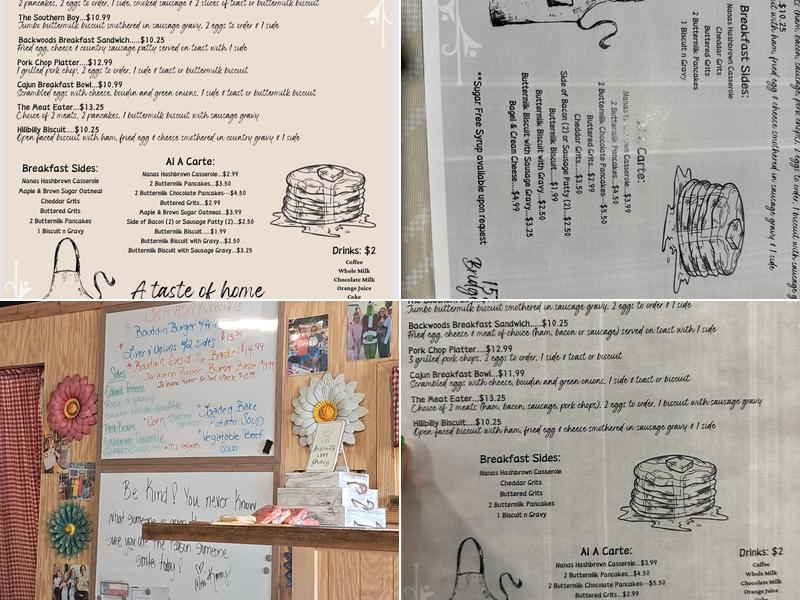 2 pancakes, 2 eggs to order, 1 side, smoked sausage & 2 slices of toast or buttermilk biscuit
The Southern Boy...$10.99
Jumbo buttermilk biscuit smothered in sausage gravy, 2 eggs & 1 side
Backwoods Breakfast Sandwich.....$10.25
Fried egg, cheese & country sausage patty served on toast with 1 side
Pork Chop Platter...$12.99
1 grilled pork chop, 2 eggs to order, 1 side & toast or buttermilk biscuit
Cajun Breakfast Bowl...$10.99
Scrambled eggs with cheese, boudin and green onions, 1 side & toast or buttermilk biscuit
The Meat Eater...$13.25
Choice of 2 meats, 2 pancakes, 1 buttermilk biscuit with sausage gravy
Hillbilly Biscuit.....$10.25
Open faced biscuit with ham, fried egg & cheese smothered in country gravy & 1 side
Breakfast Sides:
Nanas Hashbrown Casserole
Maple & Brown Sugar Oatmeal
Cheddar Grits
Buttered Grits
2 Buttermilk Pancakes
1 Biscuit n Gravy
Al A Carte:
Nanas Hashbrown Casserole...$2.99
2 Buttermilk Pancakes...$3.50
2 Buttermilk Chocolate Pancakes...$4.50
Buttered Grits...$2.99
Maple & Brown Sugar Oatmeal...$3.99
Side of Bacon (2) or Sausage Patty (2)...$2.50
Buttermilk Biscuit.....$1.99
Buttermilk Biscuit with Gravy...$2.50
Buttermilk Biscuit with Sausage Gravy...$3.25
Drinks: $2
Coffee
Whole Milk
Chocolate Milk
Orange Juice
Coke
A taste of home
$10.25
with ham, fried egg & cheese smothered in sausage gravy & 1 side
Breakfast Sides:
Nanas Hashbrown Casserole
Cheddar Grits
Buttered Grits
2 Buttermilk Pancakes
1 Biscuit n Gravy
Carte:
Nanas Hashbrown Casserole...$3.99
2 Buttermilk Pancakes...$4.50
2 Buttermilk Chocolate Pancakes...$5.50
Buttered Grits...$2.99
Cheddar Grits...$3.50
Side of Bacon (2) or Sausage Patty (2)...$2.50
Buttermilk Biscuit.....$1.99
Buttermilk Biscuit with Gravy...$2.50
Buttermilk Biscuit with Sausage Gravy...$3.25
Bagel & Cream Cheese....$4.99
**Sugar Free Syrup available upon request
SATURDAY Specials
Boudain Burger
$13.50
Liver & Onions w/2 sides
Boudain Quesadilla Basket $14.99
Jalapeno Popper Burger Basket
Sides
Collard Greens
Rice n gravy
Corn
Loaded Bake
Potato Soup
Vegetable Beef
Soup
Biscuits
Gravy
Be Kind! You never know
what someone is going
sure you are the reason someone
smiles today!
Miss Kimmy
Jumbo buttermilk biscuit smothered in sausage gravy, 2 eggs to order & 1 side
Backwoods Breakfast Sandwich...$10.25
Fried egg, cheese & meat of choice (ham, bacon or sausage) served on toast with 1 side
Pork Chop Platter...$12.99
3 grilled pork chops, 2 eggs to order, 1 side & toast or biscuit
Cajun Breakfast Bowl...$11.99
Scrambled eggs with cheese, boudin and green onions, 1 side & toast or biscuit
The Meat Eater...$13.25
Choice of 2 meats (ham, bacon, sausage, pork chops), 2 eggs to order, 1 biscuit with sausage gravy
Hillbilly Biscuit.....$10.25
Open faced biscuit with ham, fried egg & cheese smothered in sausage gravy & 1 side
Breakfast Sides:
Nanas Hashbrown Casserole
Cheddar Grits
Buttered Grits
2 Buttermilk Pancakes
1 Biscuit n Gravy
Al A Carte:
Nanas Hashbrown Casserole...$3.99
2 Buttermilk Pancakes...$4.50
2 Buttermilk Chocolate Pancakes...$5.50
Buttered Grits...$2.99
Drinks: $2
Coffee
Whole Milk
Chocolate Milk
Orange Juice